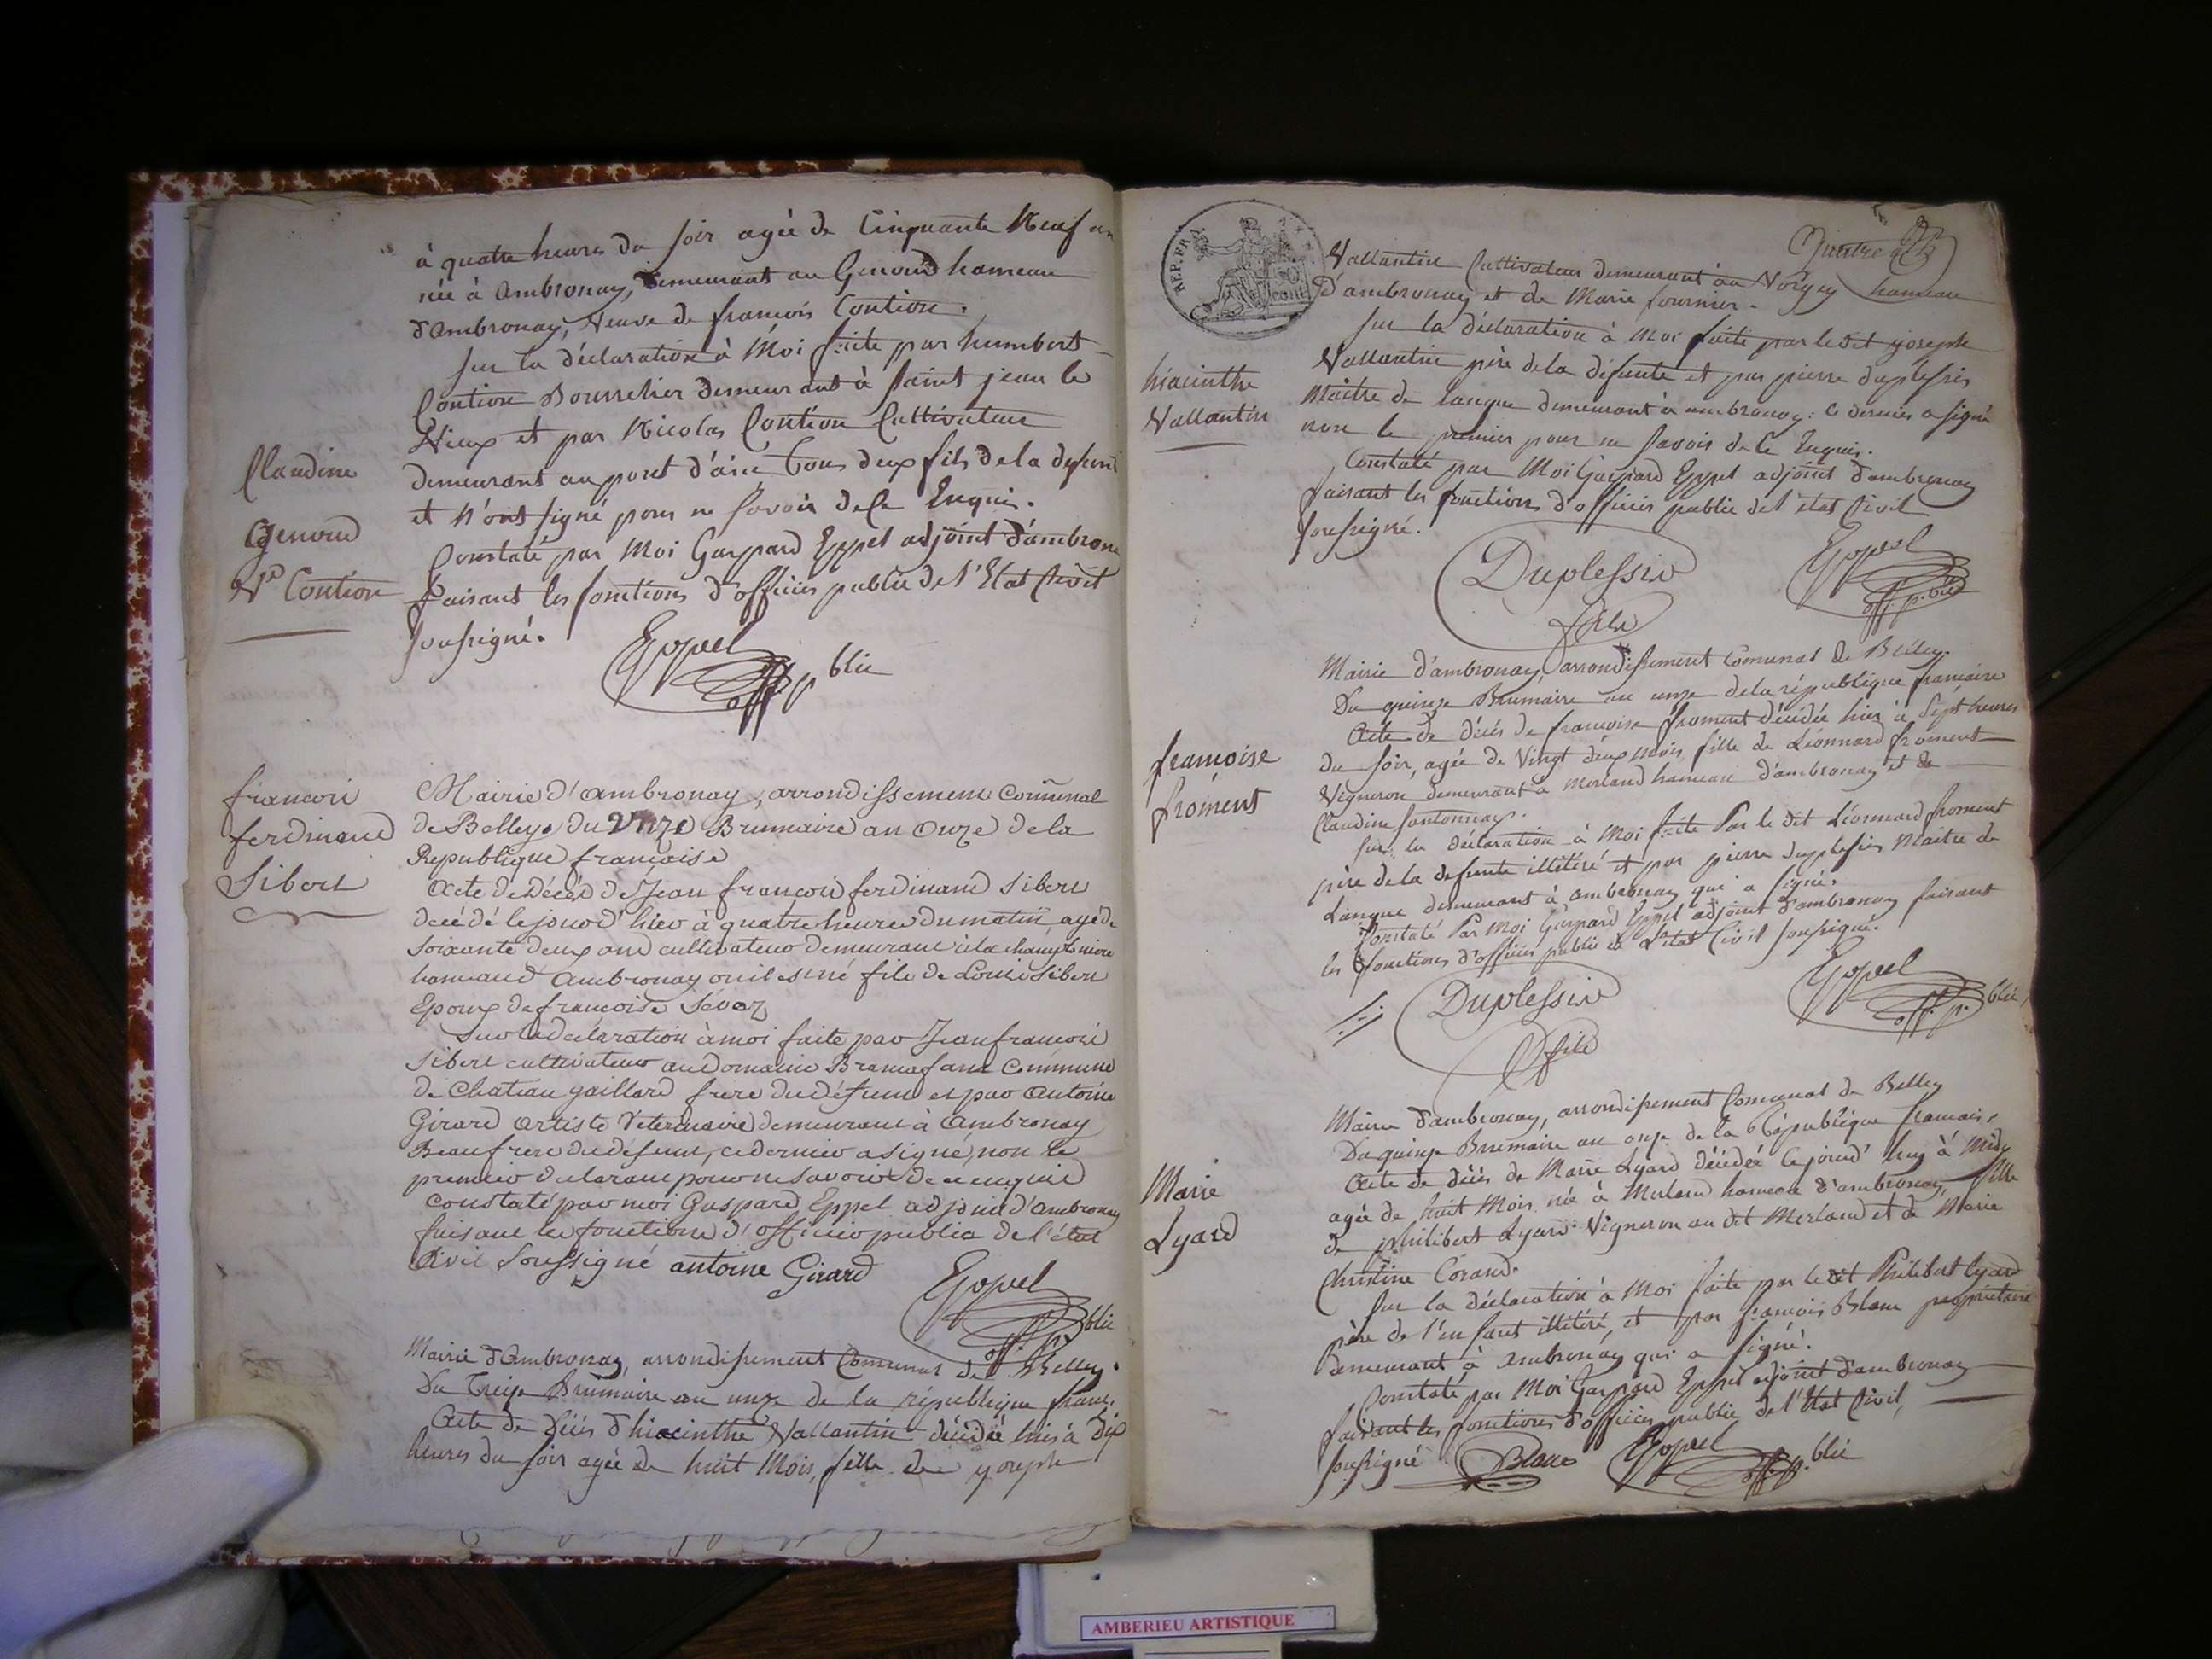 à quatre heures du soir agée de Cinquante Neuf an
née à Ambronay, demeurant au Genoud hameau
d'Ambronay, Veuve de françois Contion.
sur la déclaration à Moi faite par humbert
Contion Bourrelier demeurant à saint jean le
Vieux et par Nicolas Contion Cultivateur
demeurant au pont d'ain tous deux fils de la defun
et n'ont signé pour ne savoir de ce Enquis.
Constaté par Moi Gaspard Eppel adjoint d'ambrona
faisant les fonctions d'officier public de l'Etat Civil
soussigné.
Eppel
off. p. blic
Claudine
Genoud
Ve Contion
francois
ferdinand
Sibert
Mairie d'ambronay, arrondissement Communal
de Belley. du Onze Brumaire an Onze de la
Republique française
Acte de Décéd de Jean francois ferdinand Sibert
decédé le jour d'hier à quatre heures du matin, agé de
soixante deux ans cultivateur demeurant à la
hameau d'Ambronay ou il est né fils de Louis Sibert
Epoux de francoise Sevoz
Sur la declaration à moi faite par Jean francois
Sibert cultivateur au Domaine Bramafant Commune
de Chateau gaillard frere du défunt et par Antoine
Girard artiste Veterinaire demeurant à Ambronay
Beaufrere du défunt, ce dernier a signé, non le
premier declarant pour ne savoir de ce enquis
Constaté par moi Gaspard Eppel adjoint d'Ambronay
faisant les fonctions d'officier public de l'état
Civil Soussigné antoine Girard
Eppel
off. p. blic
Mairie d'Ambronay, arrondissement Communal de Belley.
Du Treize Brumaire an onze de la république franc.
Acte de décès d'hiacinthe Vallantin décédée hier à dix
heures du soir agée de huit Mois, fille de joseph
REP. FRA.
Vallantin Cultivateur demeurant au Vorgey hameau
D'ambronay et de Marie fournier.
sur la déclaration à Moi faite par le dit joseph
Vallantin père de la défunte et par pierre duplessis
Maitre de langue demeurant à ambronay: Ce dernier a signé
non le premier pour ne savoir de Ce Enquis.
Constaté par Moi Gaspard Eppel adjoint d'ambronay
faisant les fonctions d'officier public de l'état Civil
soussigné.
Duplessis
fils
Eppel
off. p. blic
hiacinthe
Vallantin
Mairie d'ambronay, arrondissement Comunal de Belley.
Du quinze Brumaire an onze de la république francaise
Acte de décés de francoise froment décédée hier à Sept heures
du soir, agée de Vingt deux mois, fille de Léonnard froment
Vigneron demeurant à Merland hameau d'ambronay et de
Claudine fontonnay.
Sur la déclaration à Moi faite Par le dit Léonnard froment
père de la defunte illitéré et par pierre duplessis Maitre de
Langue demeurant à ambronay qui a signé.
Constaté Par Moi Gaspard Eppel adjoint d'ambronay faisant
les fonctions d'officier public de L'état Civil soussigné.
Duplessis
fils
Eppel
off. p. blic
françoise
froment
Mairie d'ambronay, arrondissement Comunal de Belley
Du quinze Brumaire an onze de la République francaise
Acte de décès de Marie Lyard décédée Cejourd'huy à Midy
agée de huit Mois née à Merland hameau d'ambronay, fille
de philibert Lyard Vigneron au dit Merland et de Marie
Christine Corand.
Sur la déclaration à Moi faite par le dit Philibert Lyard
père de l'enfant illitéré, et par francois Blanc propriétaire
demeurant à Ambronay qui a signé.
Constaté par Moi Gaspard Eppel adjoint d'ambronay
faisant les fonctions d'officier public de l'Etat Civil,
soussigné
Blanc
Eppel
off. p. blic
Marie
Lyard
AMBERIEU ARTISTIQUE